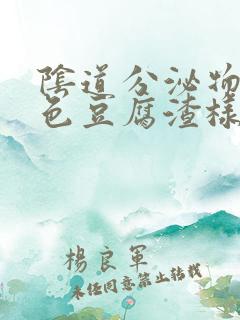 陰道分泌物
色豆腐渣樣
楊良軍
未経同意禁止轉載